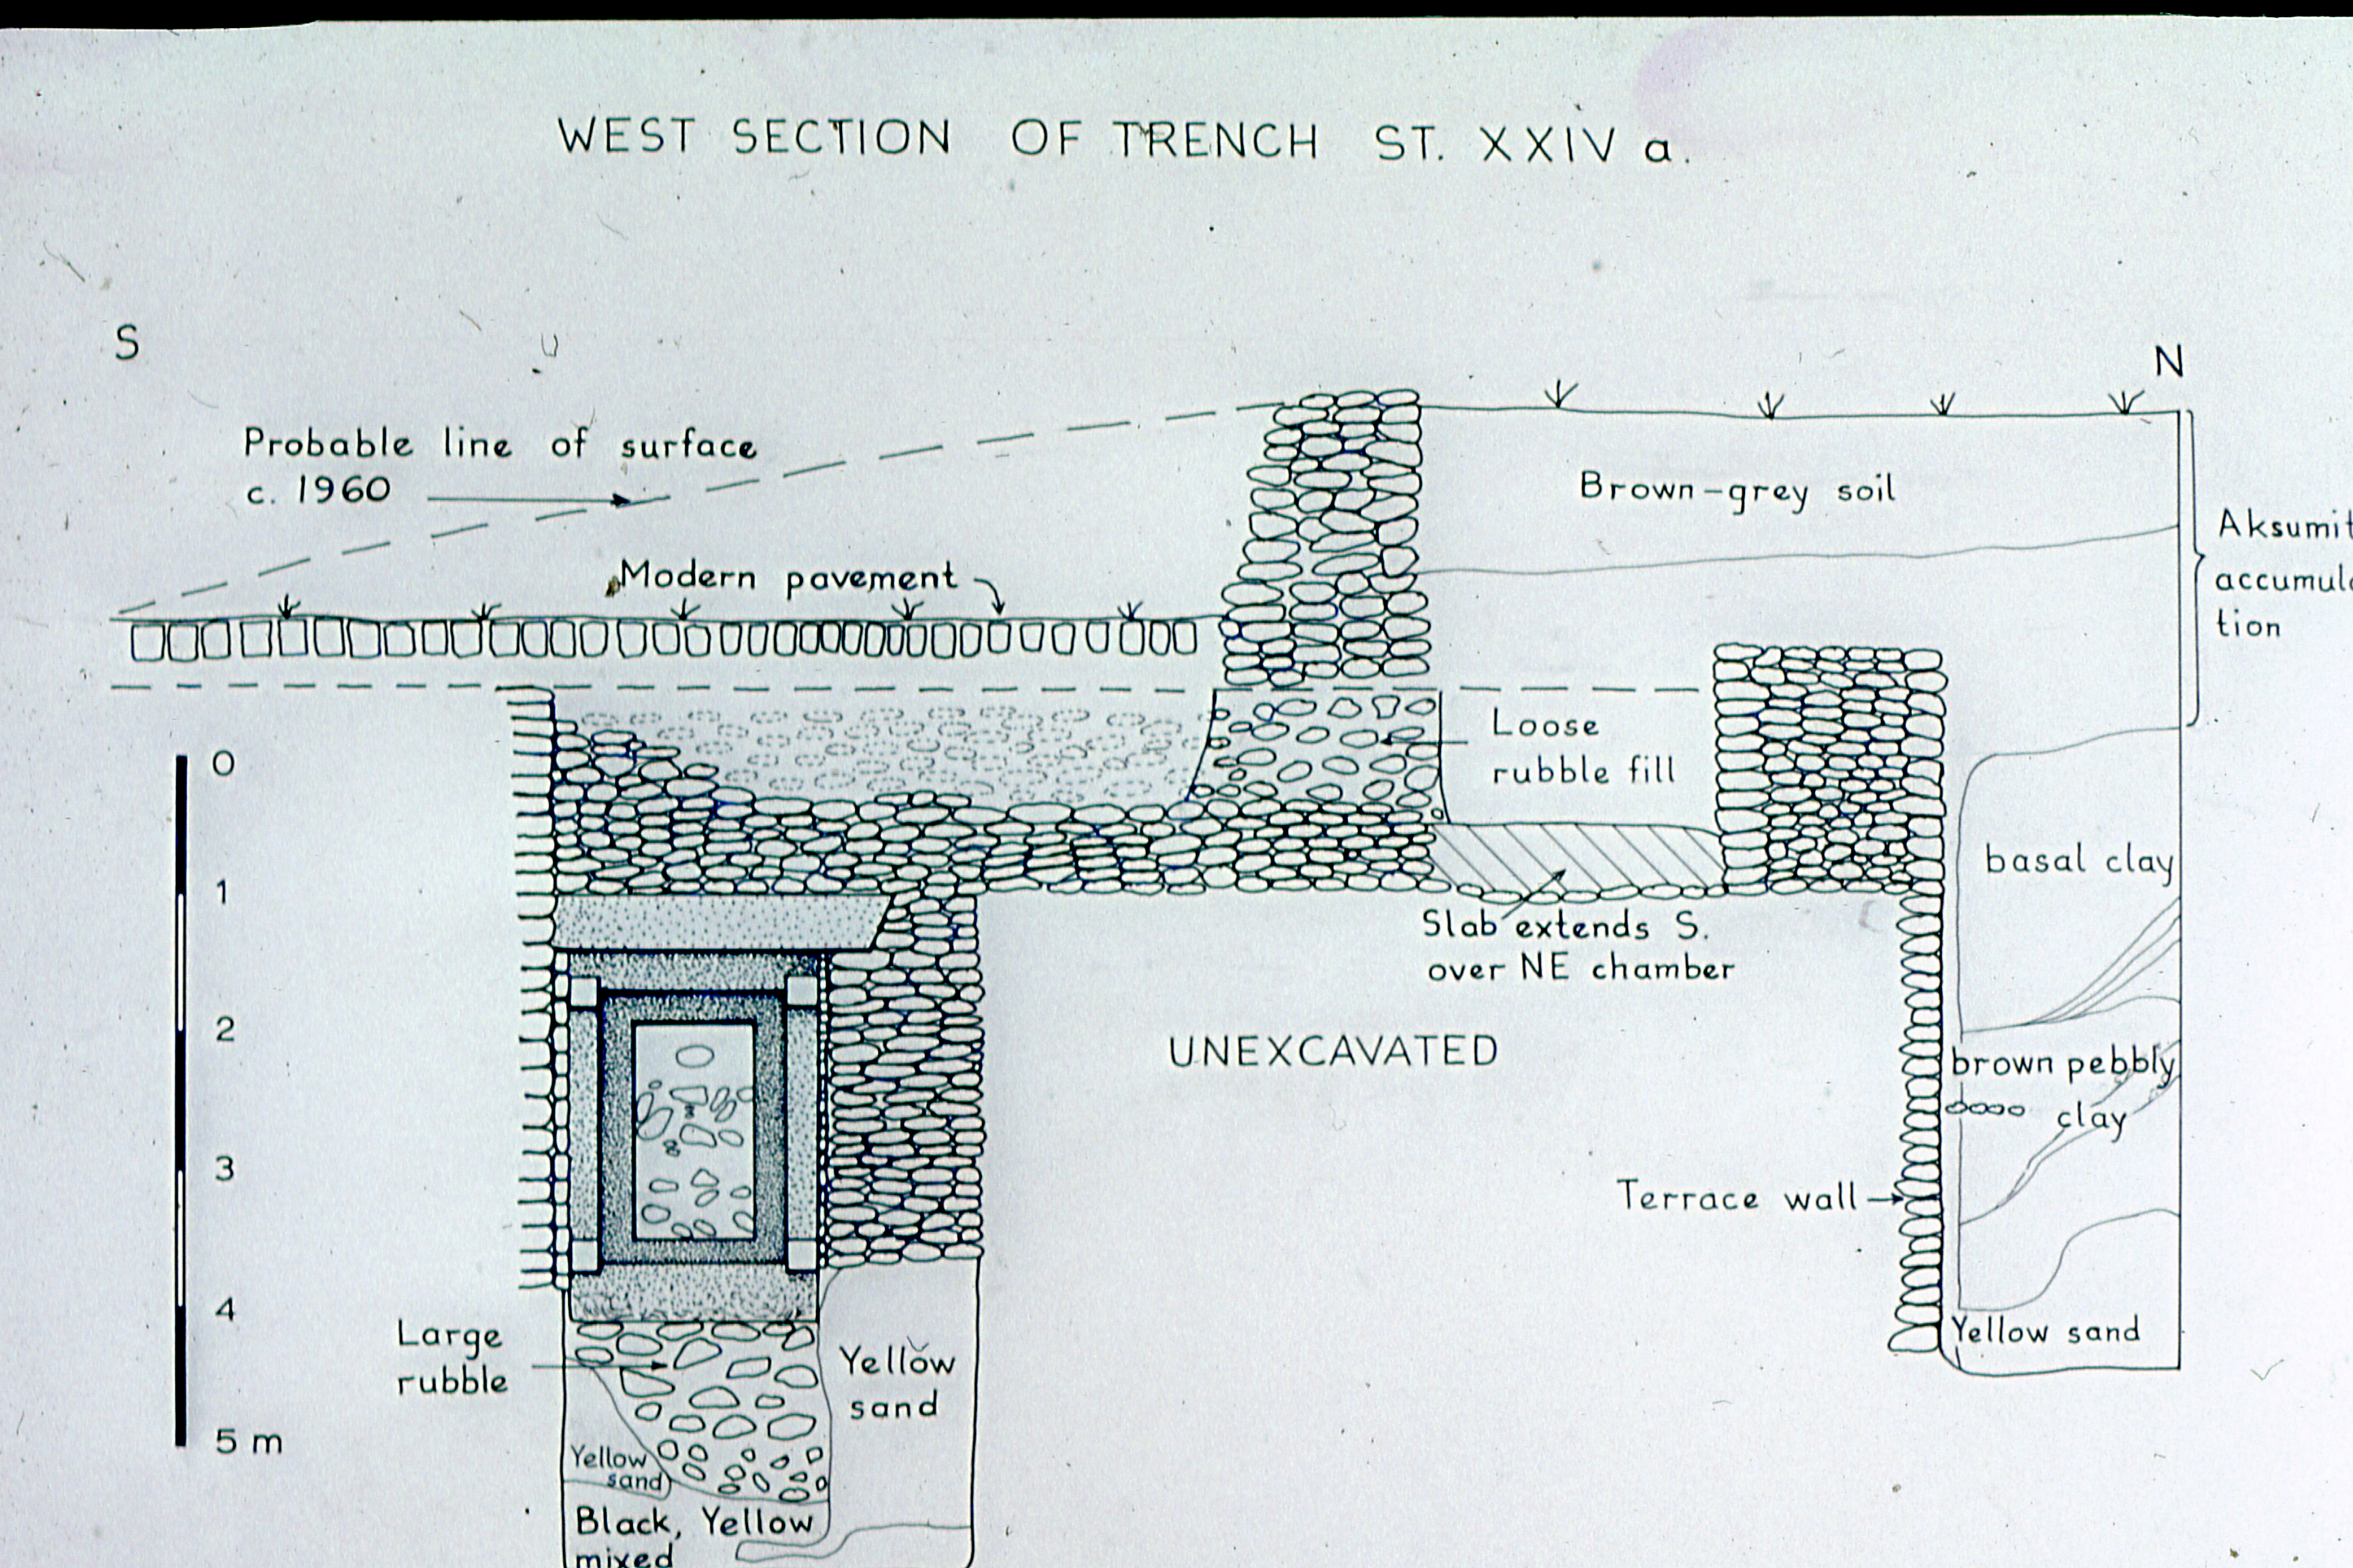 WEST SECTION OF TRENCH ST. XXIV a.
S
N
Probable line of surface
c. 1960
Modern pavement
Brown-grey soil
Aksumit
accumula
tion
Loose
rubble fill
0
1
2
3
4
5 m
basal clay
Slab extends S.
over NE chamber
UNEXCAVATED
brown pebbly
clay
Terrace wall
Yellow sand
Large
rubble
Yellow
sand
Yellow
sand
Black, Yellow
mixed